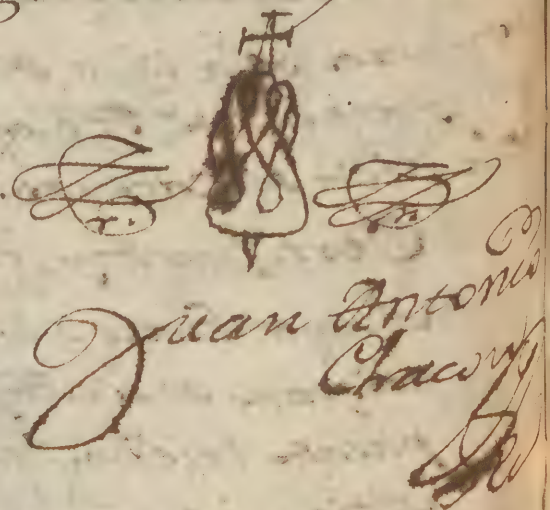 Juan Antonio
Chacon